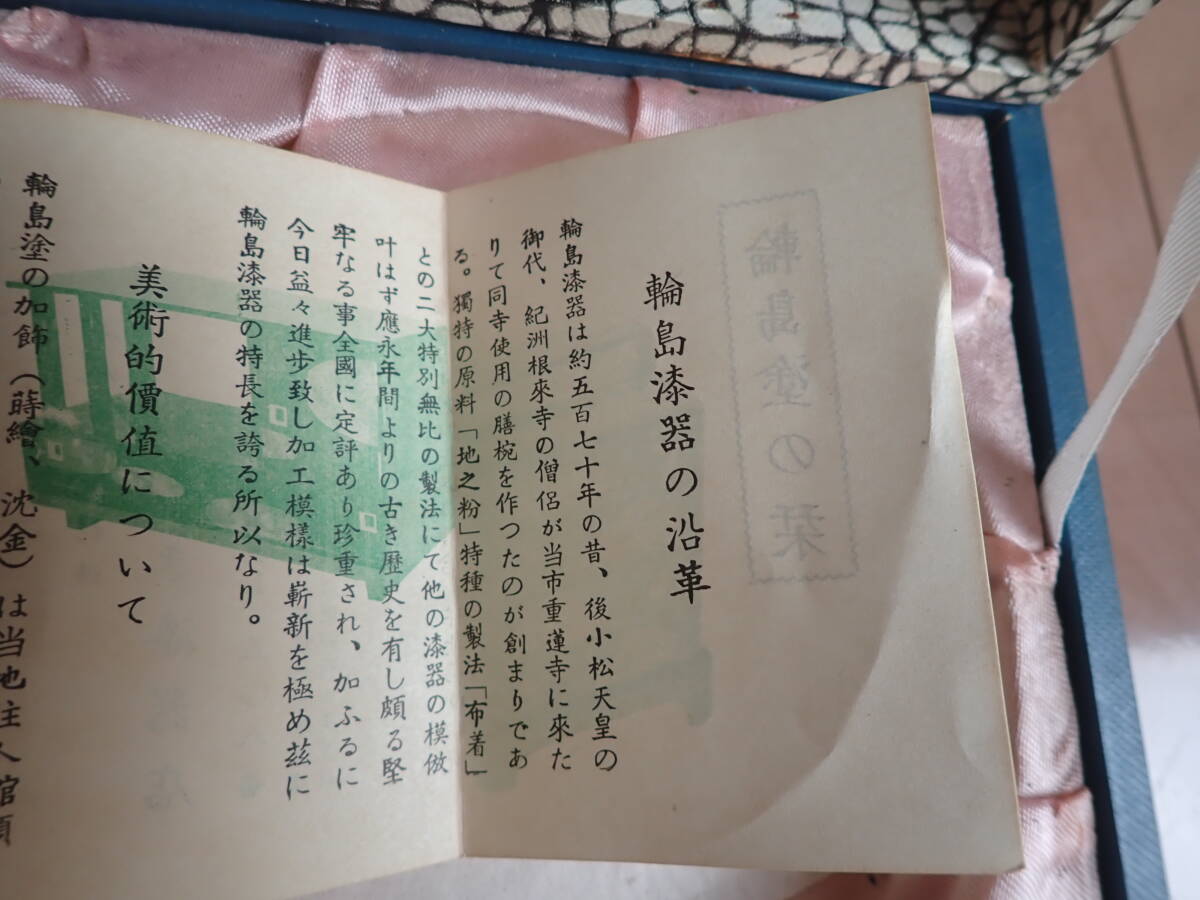 輪島塗の栞
輪島漆器の沿革
輪島漆器は約五百七十年の昔、後小松天皇の
御代、紀洲根來寺の僧侶が当市重蓮寺に來た
りて同寺使用の膳椀を作つたのが創まりであ
る。獨特の原料「地之粉」特種の製法「布着」
との二大特別無比の製法にて他の漆器の模倣
叶はず應永年間よりの古き歷史を有し頗る堅
牢なる事全國に定評あり珍重され、加ふるに
今日益々進步致し加工模様は嶄新を極め茲に
輪島漆器の特長を誇る所以なり。
美術的價值について
輪島塗の加飾（蒔繪、沈金）は当地主人館頂